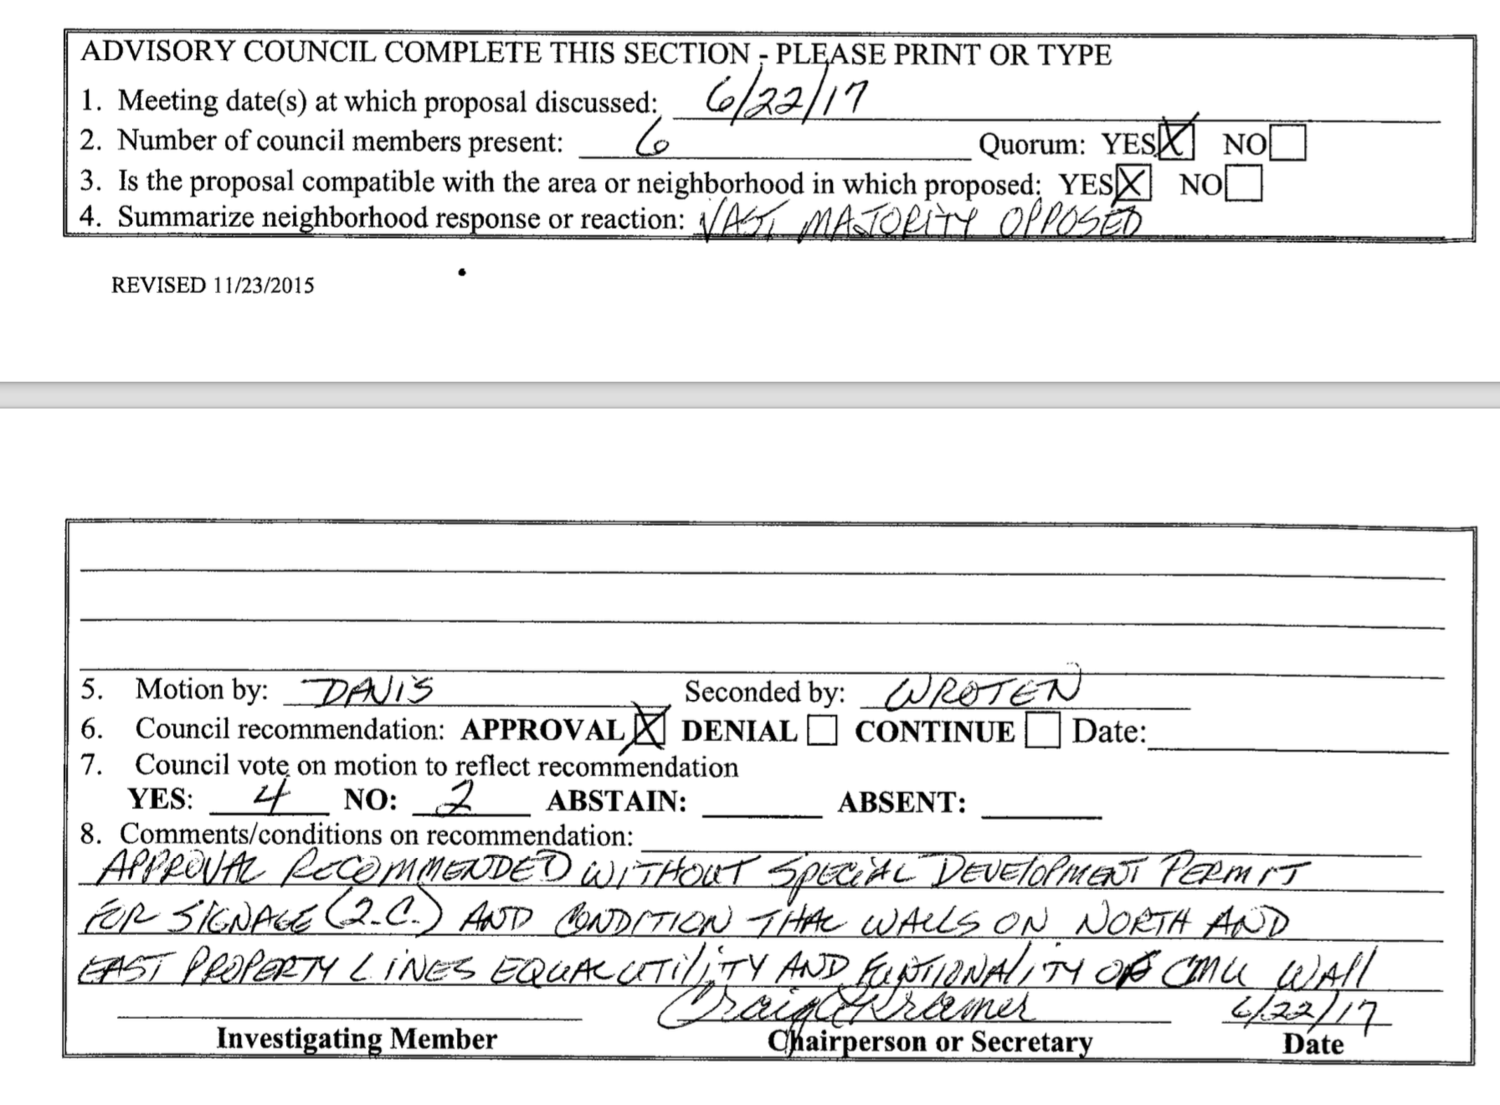 ADVISORY COUNCIL COMPLETE THIS SECTION - PLEASE PRINT OR TYPE
1. Meeting date(s) at which proposal discussed: 6/22/17
2. Number of council members present: 6 Quorum: YES NO
3. Is the proposal compatible with the area or neighborhood in which proposed: YES NO
4. Summarize neighborhood response or reaction: VAST MAJORITY OPPOSED
REVISED 11/23/2015
5. Motion by: DAVIS Seconded by: WROTEN
6. Council recommendation: APPROVAL DENIAL CONTINUE Date:
7. Council vote on motion to reflect recommendation
YES: 4 NO: 2 ABSTAIN: ABSENT:
8. Comments/conditions on recommendation:
APPROVAL RECOMMENDED WITHOUT SPECIAL DEVELOPMENT PERMIT
FOR SIGNAGE (2.C.) AND CONDITION THAT WALLS ON NORTH AND
EAST PROPERTY LINES EQUAL UTILITY AND FUNTIONALITY OF CMU WALL
Craig Kramer 6/22/17
Investigating Member Chairperson or Secretary Date